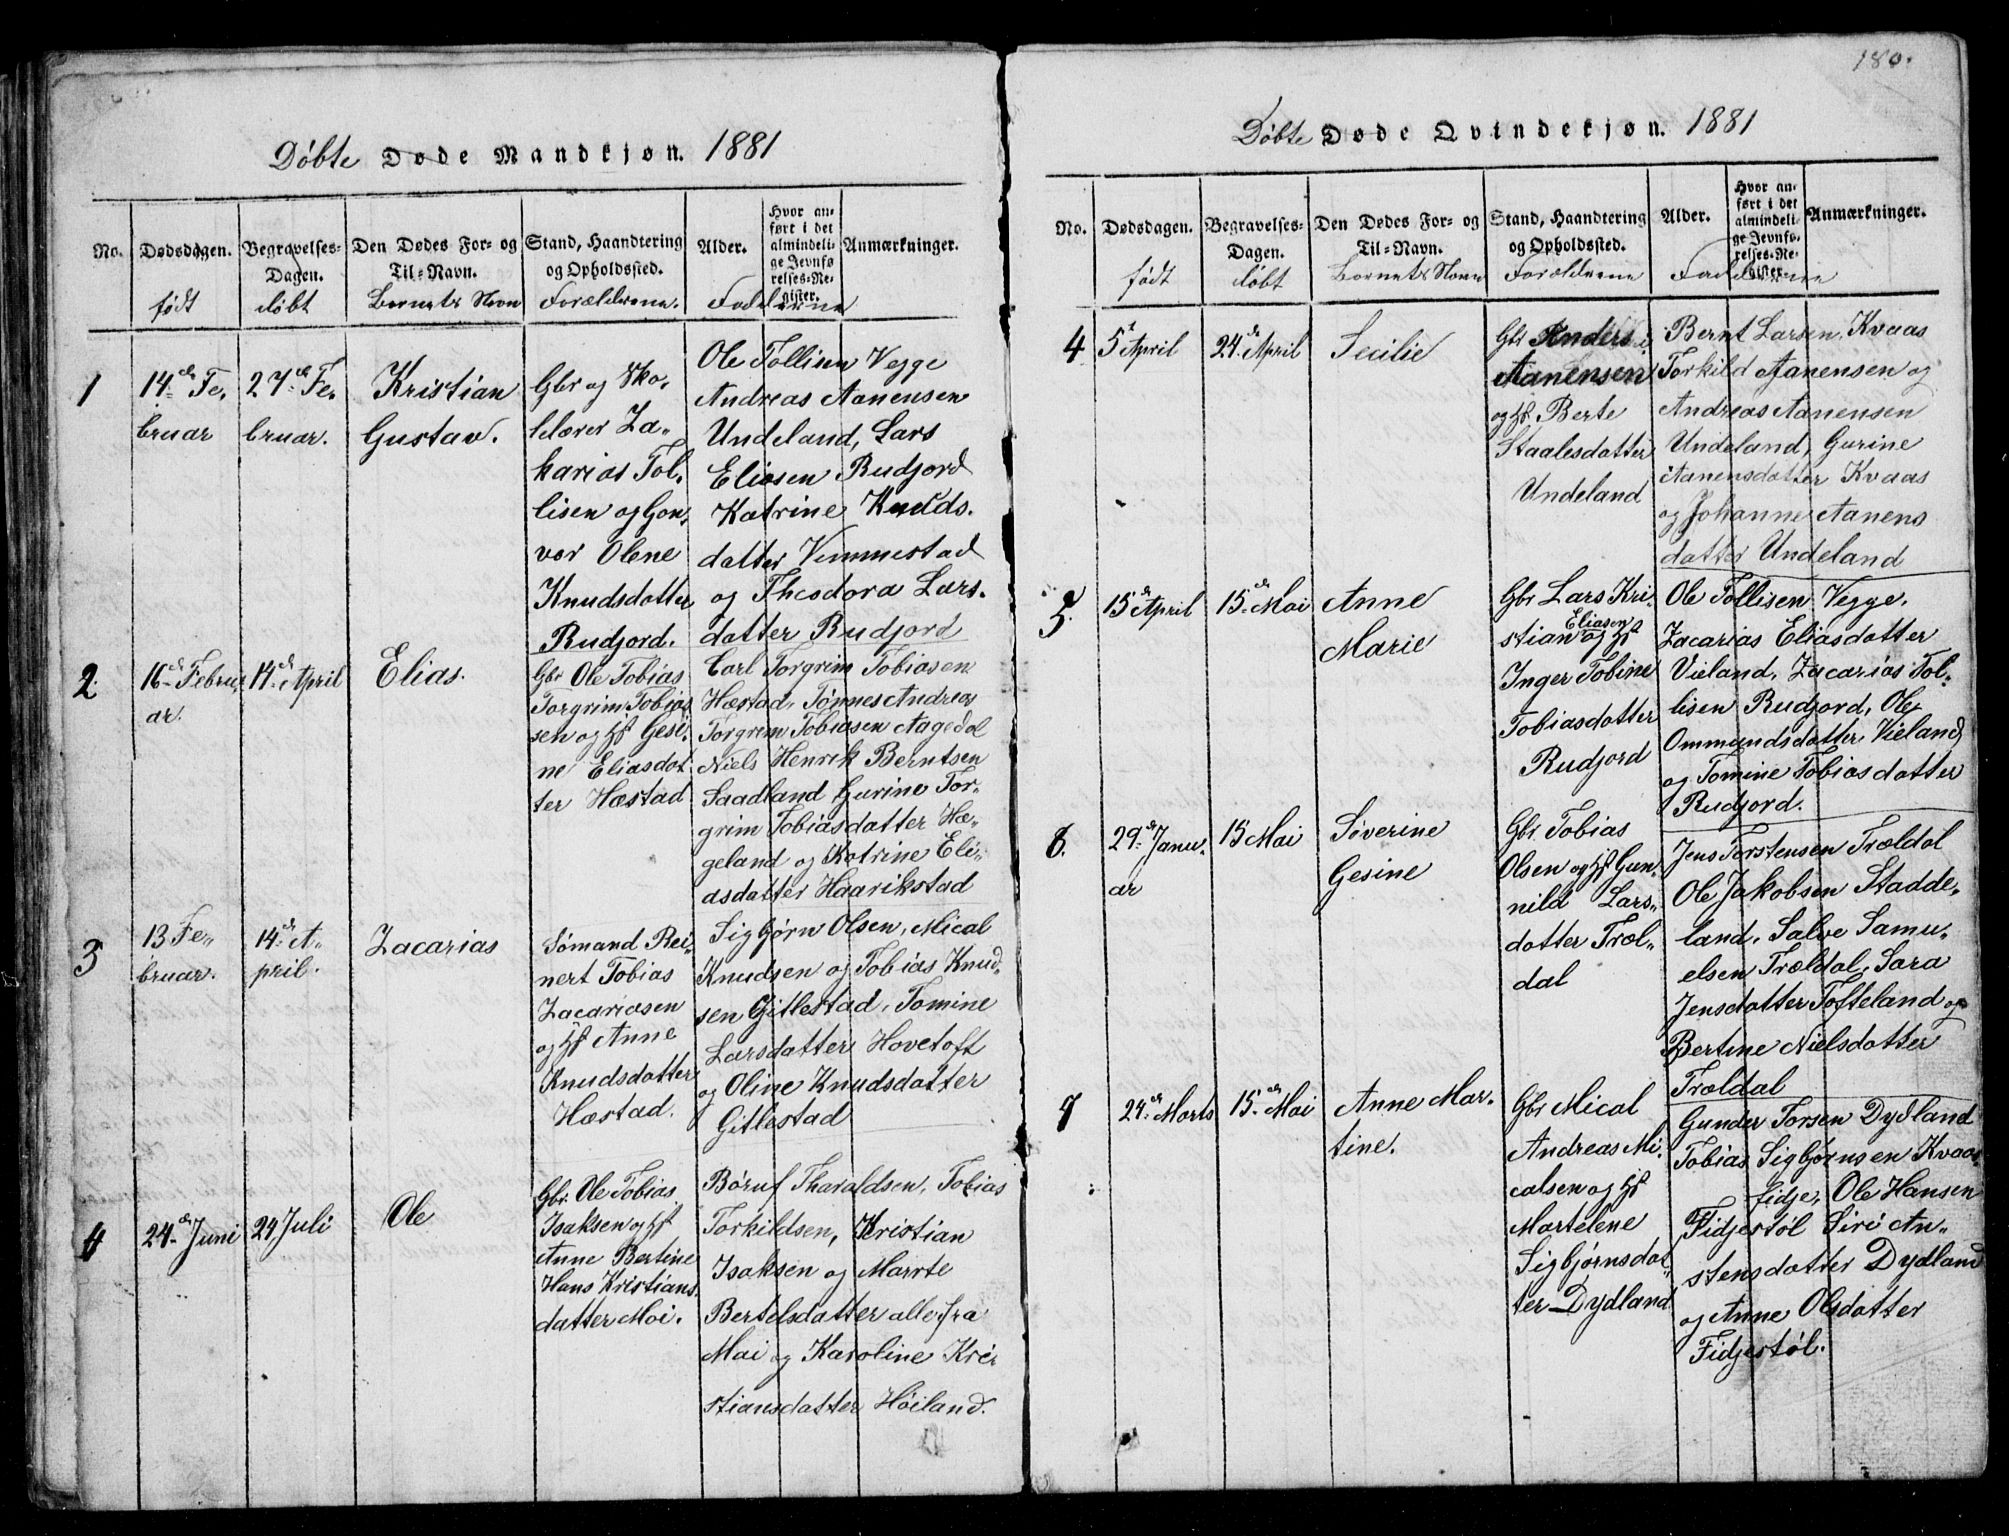 Døbte Døde Mandkjøn. 1881
No.
Dødsdagen.
født
Begravelses-
Dagen.
døbt
Den Dødes For- og
Til-Navn.
Barnets Navn
Stand, Haandtering
og Opholdssted.
Forældrene.
Alder.
Hvor an-
ført i det
almindeli-
ge Jevnfø
relses-Re-
gister.
Anmærkninger.
Fadderne
1
14de Fe-
bruar
27de Fe-
bruar.
Kristian
Gustav.
Gbr og Sko-
lelærer Za-
karias Tol-
lisen og Gon-
vor Olene
Knudsdatter
Rudjord.
Ole Tollisen Vegge
Andreas Aanensen
Undeland, Lars
Eliasen Rudjord
Katrine Knuds-
datter Vemmestad
og Theodora Lars-
datter Rudjord
2
16de Febru-
ar.
14de April
Elias.
Gbr Ole Tobias
Torgrim Tobias
sen og Hst Gesi-
ne Eliasdat
ter Hæstad
Carl Torgrim Tobiasen
Hæstad, Tønnes Andreas
Torgrim Tobiasen Aagedal
Niels Henrik Berntsen
Saadland Gurine Tor-
grim Tobiasdatter Hæ-
geland og Katrine Eli-
asdatter Haarikstad
3
13 Fe-
bruar.
14de A-
pril.
Zacarias
Sømand Rei-
nert Tobias
Zacariasen
og Hst Anne
Knudsdatter
Hæstad.
Sigbjørn Olsen, Mical
Knudsen og Tobias Knud-
sen Gitlestad, Tomine
Larsdatter Hovetoft
og Oline Knudsdatter
Gitlestad
4
24de Juni
24 Juli
Ole
Gbr. Ole Tobias
Isaksen og Hst
Anne Bertine
Hans Kristians-
datter Moi.
Børuf Tharaldsen, Tobias
Torkildsen, Kristian
Isaksen og Marrte
Bertelsdatter alle fra
Mai og Karoline Kri-
stiansdatter Høiland.
180.
Døbte Døde Qvindekjøn. 1881
No.
Dødsdagen.
født
Begravelses-
Dagen.
døbt
Den Dødes For- og
Til-Navn.
Barnets Navn
Stand, Haandtering
og Opholdssted.
Forældrene
Alder.
Hvor an-
ført i det
almindeli-
ge Jevnfø-
relses-Re-
gister.
Anmærkninger.
Fadderne
4
5te April
24de April
Secilie
Gbr Anders
Aanensen
og Hst. Berte
Staalesdatter
Undeland
Bernt Larsen Kvaas
Torkild Aanensen og
Andreas Aanensen
Undeland, Gurine
Aanensdatter Kvaas
og Johanne Aanens
datter Undeland
5.
15de April
15de Mai
Anne
Marie
Gbr Lars Kri-
Eliasen
stian og Hst
Inger Tobine
Tobiasdatter
Rudjord
Ole Tollisen Vegge.
Zacarias Eliasdatter
Vieland, Zacarias Tol-
lisen Rudjord, Ole
Ommundsdatter Vieland
og Tomine Tobiasdatter
Rudjord.
6.
29de Janu-
ar
15 Mai
Søverine
Gesine
Gbr. Tobias
Olsen og Hst Gun-
nild Lars-
datter Træl-
dal
Jens Torstensen Træeldal
Ole Jakobsen Stadde-
land, Salve Samu-
elsen Træeldal, Sara
Jensdatter Tofteland og
Bertine Nielsdatter
Træeldal
7
24de Marts
15de Mai
Anne Mar-
tine.
Gbr Mical
Andreas Mi-
calsen og Hst
Martelene
Sigbjørnsdat-
ter Dydland
Gunder Torsen Dydland
Tobias Sigbjørnsen Kvaas
fidje, Ole Hansen
Fidjestøl Siri An-
stensdatter Dydland
og Anne Olsdatter
Fidjestøl.